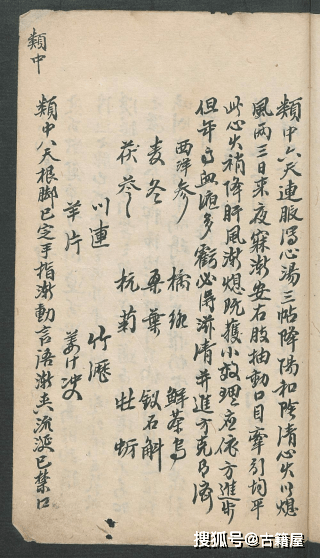 類中六天連服瀉心湯三帖降陽和陰清心火以熄
風兩三日來夜寐漸安右肢抽動口目牽引均平
此心火稍降肝風漸熄既獲小效理應依方進步
但年高血液多虧必得滋清並進方克有濟
西洋參 橘絡 鮮
麦冬 桑葉 釵石斛
茯 杭菊 牡蛎
川連 竹瀝
片 姜汁
類中八天根脚已定手指漸動言語漸 流涎已禁口
類中
搜狐号@古籍屋